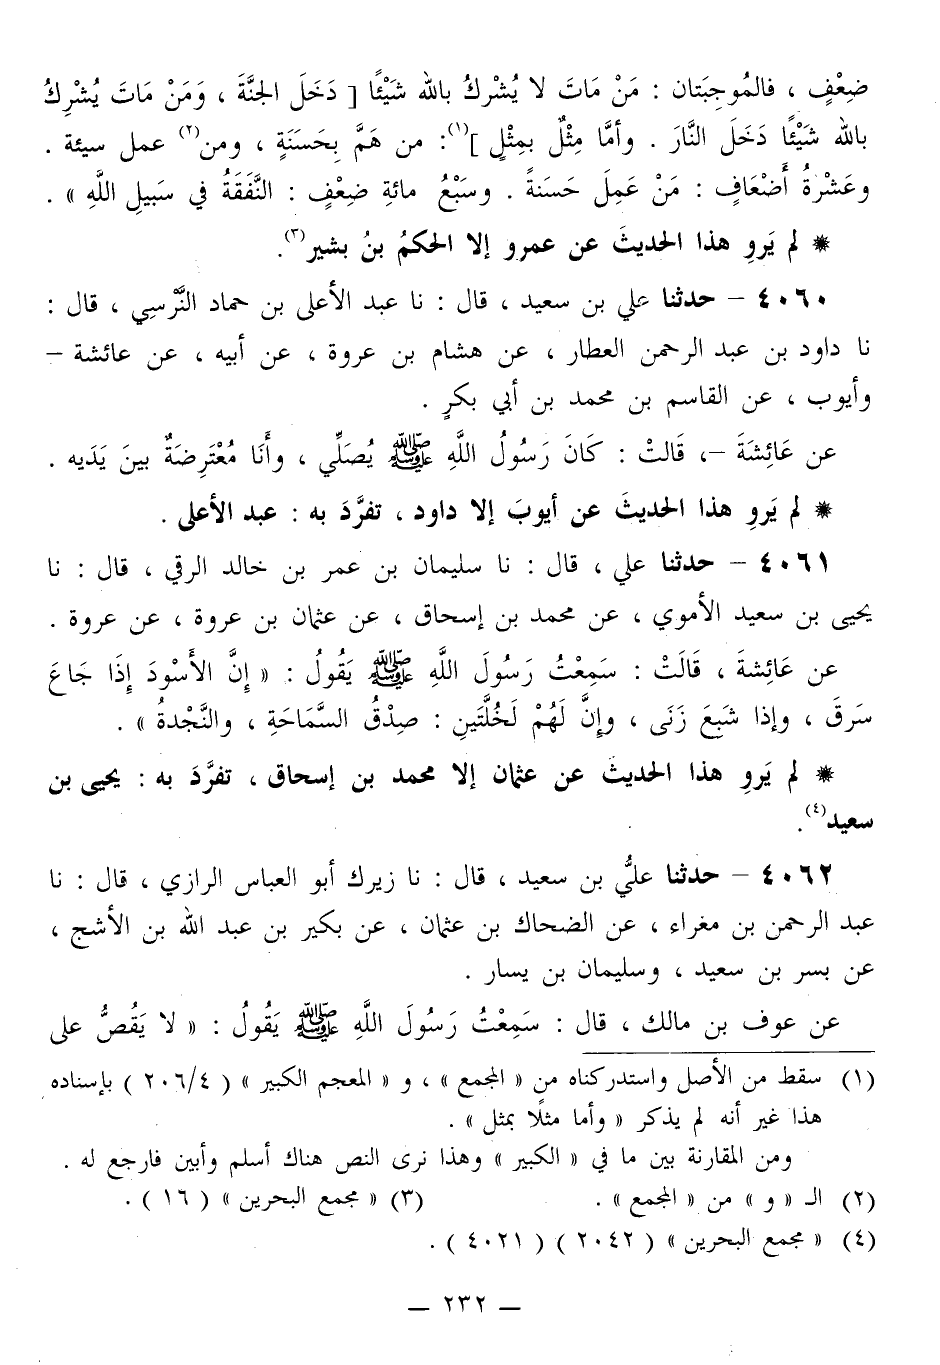 ضِعْفٍ ، فالمُوجِبَتان : مَنْ مَاتَ لا يُشْرِكُ بالله شَيْئًا [ دَخَلَ الجنَّةَ ، وَمَنْ مَاتَ يُشْرِكُ
بالله شَيْئًا دَخَلَ النَّارَ . وأمَّا مِثْلٌ بمِثْلٍ ](١): من هَمَّ بِحَسَنَةٍ ، ومن(٢) عمل سيئة .
وعَشْرةُ أَضْعَافٍ : مَنْ عَمِلَ حَسَنةً . وسَبْعُ مائةِ ضِعْفٍ : النَّفَقَةُ في سَبِيلِ اللَّهِ » .
* لم يَروِ هذا الحديثَ عن عمرو إلا الحكمُ بنُ بشير(٣).
٤٠٦٠ – حدثنا علي بن سعيد ، قال : نا عبد الأعلى بن حماد النَّرْسِي ، قال :
نا داود بن عبد الرحمن العطار ، عن هشام بن عروة ، عن أبيه ، عن عائشة –
وأيوب ، عن القاسم بن محمد بن أبي بكرٍ .
عن عَائِشَةَ –، قَالتْ : كَانَ رَسُولُ اللَّهِ ﷺ يُصَلِّي ، وأَنَا مُعْتَرِضَةٌ بينَ يَدَيه .
* لم يَروِ هذا الحديثَ عن أيوبَ إلا داود ، تفرَّدَ به : عبد الأعلى .
٤٠٦١ – حدثنا علي ، قال : نا سليمان بن عمر بن خالد الرقي ، قال : نا
يحيى بن سعيد الأموي ، عن محمد بن إسحاق ، عن عثمان بن عروة ، عن عروة .
عن عَائِشةَ ، قَالَتْ : سَمِعْتُ رَسُولَ اللَّهِ ﷺ يَقُولُ : « إِنَّ الأَسْوَدَ إِذَا جَاعَ
سَرقَ ، وإذا شَبِعَ زَنَى ، وإنَّ لَهُمْ لَخُلَّتَينِ : صِدْقُ السَّمَاحَةِ ، والنَّجْدةُ » .
* لم يَروِ هذا الحديثَ عن عثمان إلا محمد بن إسحاق ، تفرَّدَ به : يحيى بن
سعيد(٤).
٤٠٦٢ – حدثنا عليُّ بن سعيد ، قال : نا زيرك أبو العباس الرازي ، قال : نا
عبد الرحمن بن مغراء ، عن الضحاك بن عثمان ، عن بكير بن عبد الله بن الأشج ،
عن بسر بن سعيد ، وسليمان بن يسار .
عن عوف بن مالك ، قال : سَمِعْتُ رَسُولَ اللَّهِ ﷺ يَقُولُ : « لا يَقُصُّ على
(١) سقط من الأصل واستدركناه من « المجمع » ، و « المعجم الكبير » ( ٢٠٦/٤ ) بإسناده
هذا غير أنه لم يذكر « وأما مثلًا بمثل » .
ومن المقارنة بين ما في « الكبير » وهذا نرى النص هناك أسلم وأبين فارجع له .
(٢) الـ « و » من « المجمع » . (٣) « مجمع البحرين » ( ١٦ ) .
(٤) « مجمع البحرين » ( ٢٠٤٢ ) ( ٤٠٢١ ) .
— ٢٣٢ —